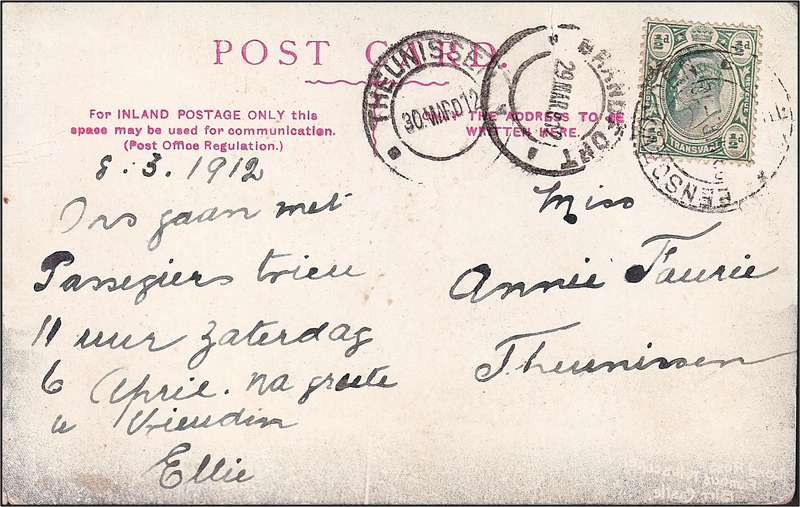 POST CARD.
For INLAND POSTAGE ONLY this
space may be used for communication.
(Post Office Regulation.)
ONLY THE ADDRESS TO BE
WRITTEN HERE.
THEUNISSEN
30 MAR 12
BRANDFORT
29 MAR
½d ½d
TRANSVAAL
½d ½d
8.3.1912
Ons gaan met
Passegiers trien
11 uur Zaterdag
6 April. na groete
u Vriendin
Ellie
Miss
Annie Fourie
Theunissen